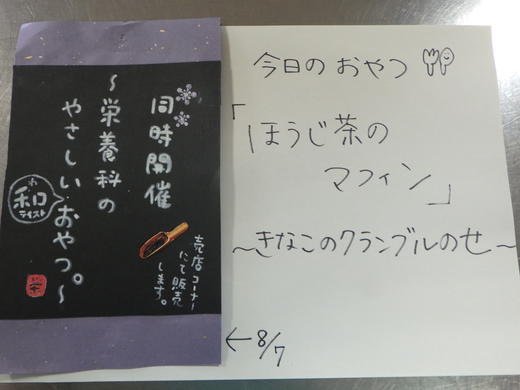 同時開催
～栄養科の
やさしい
和
わ
テイスト
おやつ。～
売店コーナー
にて販売
します。
栄
今日のおやつ
「ほうじ茶の
マフィン」
～きなこのクランブルのせ～
←8/7